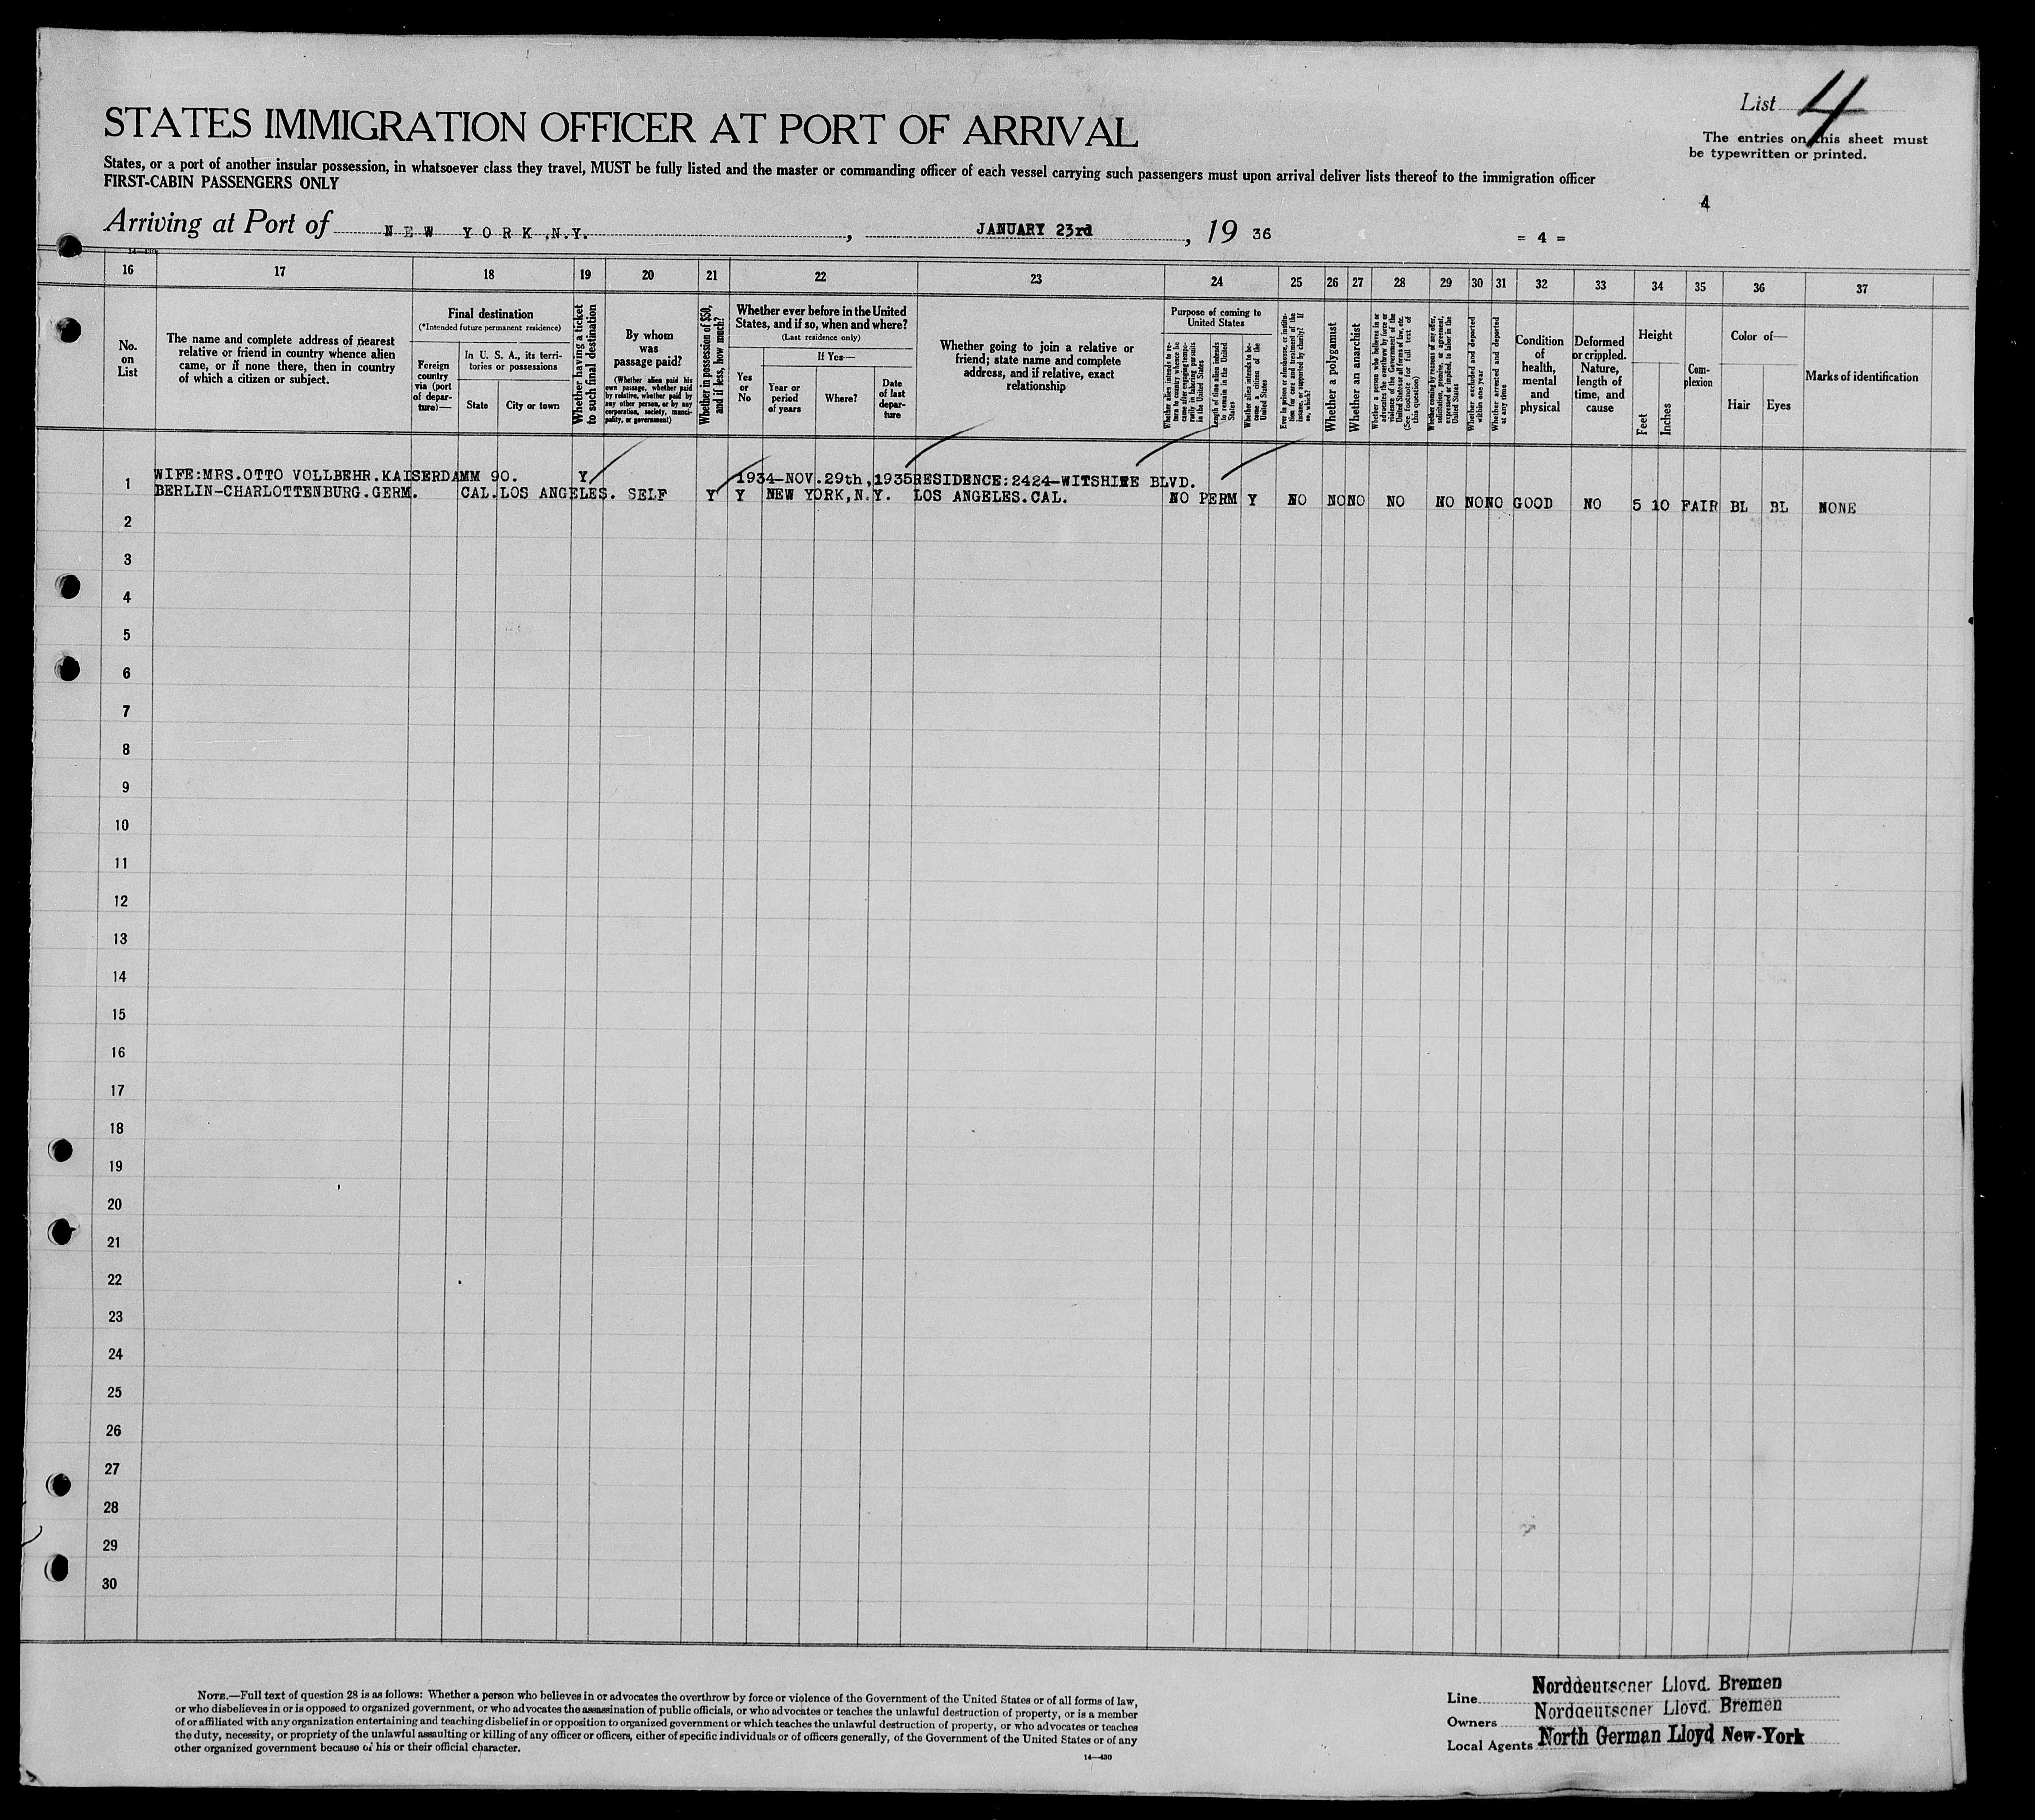 List 4
STATES IMMIGRATION OFFICER AT PORT OF ARRIVAL
The entries on this sheet must
be typewritten or printed.
States, or a port of another insular possession, in whatsoever class they travel, MUST be fully listed and the master or commanding officer of each vessel carrying such passengers must upon arrival deliver lists thereof to the immigration officer
FIRST-CABIN PASSENGERS ONLY
4
Arriving at Port of NEW YORK,N.Y. , JANUARY 23rd , 19 36
= 4 =
16 17 18 19 20 21 22 23 24 25 26 27 28 29 30 31 32 33 34 35 36 37
No.
on
List
The name and complete address of nearest
relative or friend in country whence alien
came, or if none there, then in country
of which a citizen or subject.
Final destination
(*Intended future permanent residence)
Foreign
country
via (port
of depar-
ture)—
In U. S. A., its terri-
tories or possessions
State
City or town
Whether having a ticket
to such final destination
By whom
was
passage paid?
(Whether alien paid his
own passage, whether paid
by relative, whether paid by
any other person, or by any
corporation, society, munici-
pality, or government)
Whether in possession of $50,
and if less, how much?
Whether ever before in the United
States, and if so, when and where?
(Last residence only)
Yes
or
No
If Yes—
Year or
period
of years
Where?
Date
of last
depar-
ture
Whether going to join a relative or
friend; state name and complete
address, and if relative, exact
relationship
Purpose of coming to
United States
Whether alien intends to re-
turn to country whence he
came after engaging tempo-
rarily in laboring pursuits
in the United States
Length of time alien intends
to remain in the United
States
Whether alien intends to be-
come a citizen of the
United States
Ever in prison or almshouse, or institu-
tion for care and treatment of the
insane, or supported by charity? If
so, which?
Whether a polygamist
Whether an anarchist
Whether a person who believes in or
advocates the overthrow by force or
violence of the Government of the
United States or all forms of law, etc.
(See footnote for full text of
this question)
Whether coming by reasons of any offer,
solicitation, promise, or agreement,
expressed or implied, to labor in the
United States
Whether excluded and deported
within one year
Whether arrested and deported
at any time
Condition
of
health,
mental
and
physical
Deformed
or crippled.
Nature,
length of
time, and
cause
Height
Feet
Inches
Com-
plexion
Color of—
Hair
Eyes
Marks of identification
WIFE:MRS.OTTO VOLLBEHR.KAISERDAMM 90. Y 1934-NOV.29th,1935 RESIDENCE:2424-WITSHIRE BLVD.
1 BERLIN-CHARLOTTENBURG.GERM. CAL.LOS ANGELES. SELF Y Y NEW YORK,N.Y. LOS ANGELES.CAL. NO PERM Y NO NO NO NO NO NO NO GOOD NO 5 10 FAIR BL BL NONE
2
3
4
5
6
7
8
9
10
11
12
13
14
15
16
17
18
19
20
21
22
23
24
25
26
27
28
29
30
NOTE.—Full text of question 28 is as follows: Whether a person who believes in or advocates the overthrow by force or violence of the Government of the United States or of all forms of law,
or who disbelieves in or is opposed to organized government, or who advocates the assassination of public officials, or who advocates or teaches the unlawful destruction of property, or is a member
of or affiliated with any organization entertaining and teaching disbelief in or opposition to organized government or which teaches the unlawful destruction of property, or who advocates or teaches
the duty, necessity, or propriety of the unlawful assaulting or killing of any officer or officers, either of specific individuals or of officers generally, of the Government of the United States or of any
other organized government because of his or their official character.
14—430
Line Norddeutscher Lloyd. Bremen
Owners Norddeutscher Lloyd. Bremen
Local Agents North German Lloyd New-York